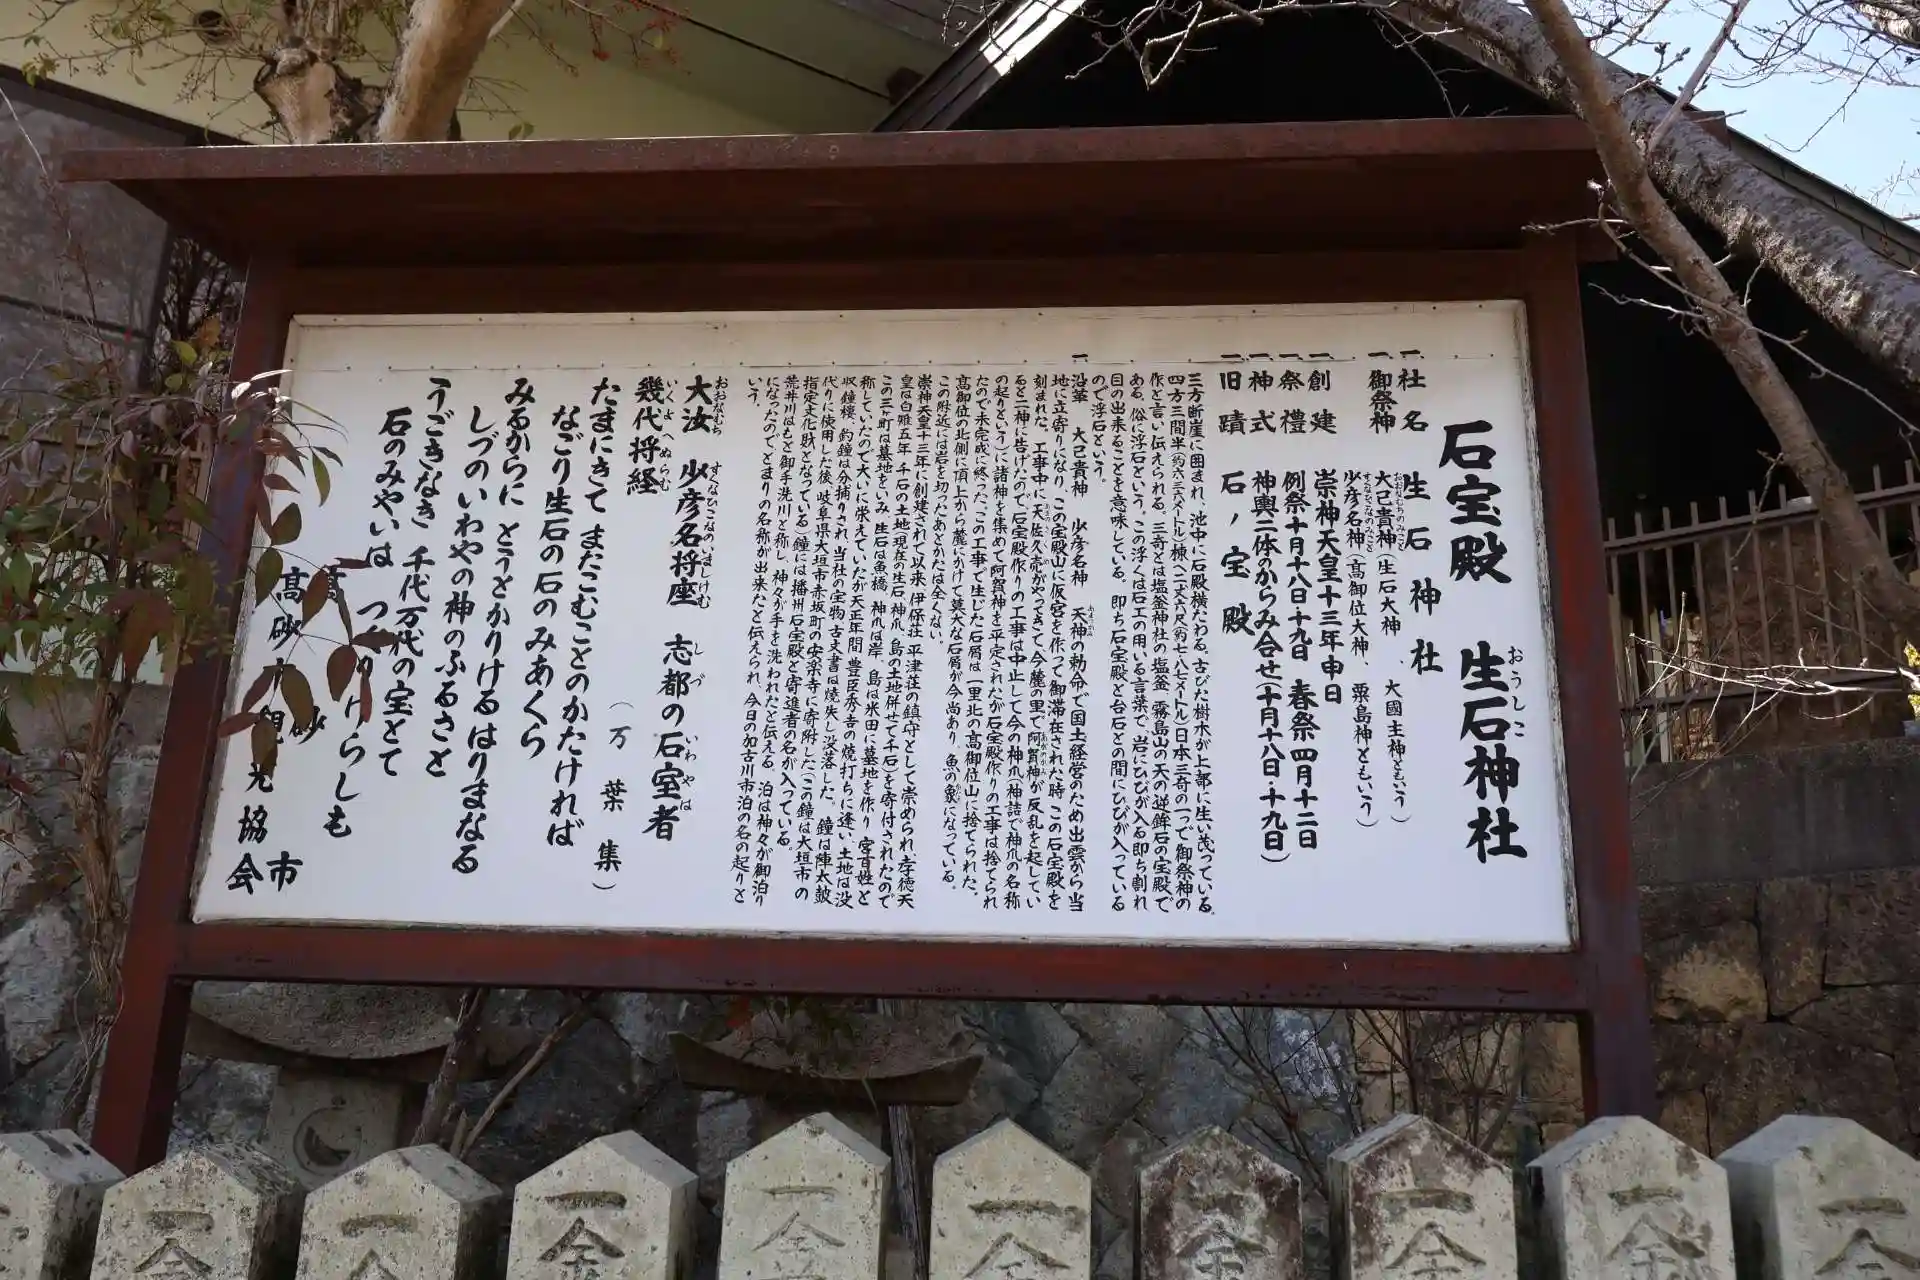 石宝殿 生石神社
おうしこ
一、社名 生石神社
一、御祭神 大己貴神(生石大神 大國主神ともいう)
おおなむちのみこと
少彦名神(高御位大神、粟島神ともいう)
すくなひこなのみこと
一、創建 崇神天皇十三年申日
一、祭禮 例祭十月十八日・十九日 春祭四月十二日
一、神式 神輿二体のからみ合せ(十月十八日・十九日)
一、旧蹟 石ノ宝殿
三方断崖に囲まれ、池中に石殿横たわる。古びた樹木が上部に生い茂っている。
四方三間半(約六・三六メートル)棟へ二丈六尺(約七・八七メートル)日本三奇の一つで御祭神の
作と言い伝えられる。三奇とは塩釜神社の塩釜、霧島山の天の逆鉾石の宝殿で
ある。俗に浮石という。この浮くは石工の用いる言葉で岩にひびが入る即ち割れ
目の出来ることを意味している。即ち石宝殿と台石との間にひびが入っている
ので浮石という。
一、沿革 大己貴神 少彦名神 天神の勅命で国土経営のため出雲から当
地に立寄りになり、この宝殿山に仮宮を作って御滞在された時この石宝殿を
刻まれた。工事中に天佐久売がやってきて、今麓の里で阿賀神が反乱を起してい
ると二神に告げたので石宝殿作りの工事は中止して今の神爪(神詰で神爪の名称
の起りという)に諸神を集めて阿賀神を平定されたが石宝殿作りの工事は捨てられ
たので未完成に終った。この工事で生じた石屑は一里北の高御位山に捨てられた。
高御位の北側に頂上から麓にかけて莫大な石屑が今尚あり、魚の象になっている。
この附近には岩を切ったあとかたは全くない。
崇神天皇十三年に創建されて以来伊保荘、平津荘の鎮守として崇められ、孝徳天
皇は白雉五年 千石の土地(現在の生石 神爪、島の土地併せて千石)を寄付されたので
この三ヶ町は墓地をいみ、生石は魚橋 神爪は岸、島は米田に墓地を作り、宮百姓と
称していたので大いに栄えていたが天正年間、豊臣秀吉の焼打ちに逢い、土地は没
収、鐘楼、釣鐘は分捕りされ、当社の宝物、古文書は焼失し没落した。鐘は陣太鼓
代りに使用した後、岐阜県大垣市赤坂町の安楽寺に寄附した(この鐘は大垣市の
指定文化財となっている)鐘には播州石宝殿と寄進者の名が入っている。
荒井川はもと御手洗川と称し、神々が手を洗われたと伝える。泊は神々が御泊り
になったので、とまりの名称が出来たと伝えられ、今日の加古川市泊の名の起りと
いう。
大汝 少彦名将座 志都の石室者
おおなむち すくなひこなのいましけむ しづ いわやは
幾代将経
いくよへぬらむ
(万葉集)
たまにきて またこむことのかたければ
なごり生石の石のみあくら
みるからに とうとかりけるはりまなる
しづのいわやの神のふるさと
うごきなき 千代万代の宝とて
石のみやいは つくりけらしも
高砂市
高砂市観光協会